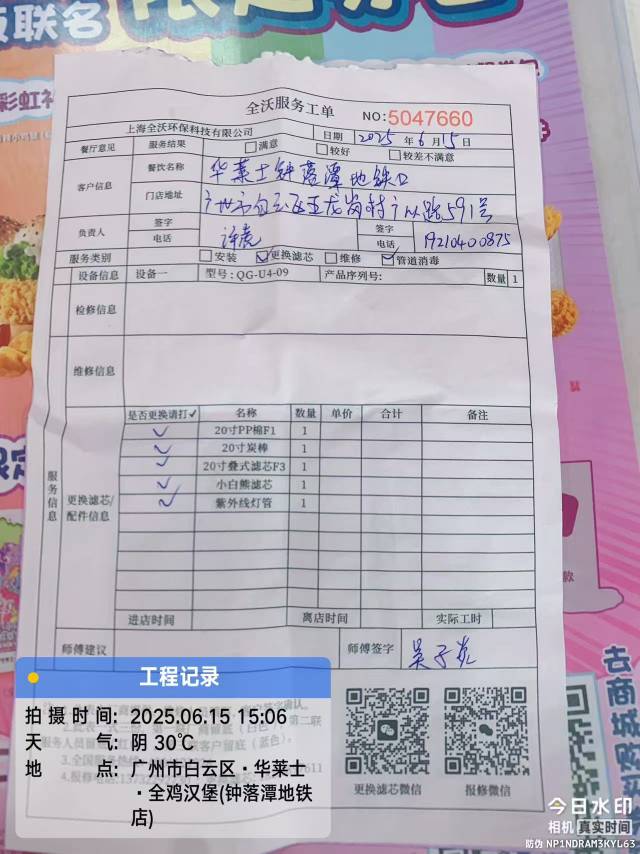 联名
彩虹
全沃服务工单
NO:5047660
上海全沃环保科技有限公司
日期 2025 年 6 月 15 日
餐厅意见 服务结果 满意 较好 较差不满意
客户信息 餐饮名称 华莱士钟落潭地铁口
门店地址 广州市白云区五龙岗村广从路591号
负责人 签字 签字
电话 电话 19210400875
服务类别 安装 更换滤芯 维修 管道消毒
设备信息 设备一 型号:QG-U4-09 产品序列号: 数量 1
检修信息
维修信息
服务信息
更换滤芯/配件信息
是否更换请打✓ 名称 数量 单价 合计 备注
✓ 20寸PP棉F1 1
✓ 20寸炭棒 1
✓ 20寸叠式滤芯F3 1
✓ 小白熊滤芯 1
✓ 紫外线灯管 1
进店时间 离店时间 实际工时
师傅建议 师傅签字
更换滤芯微信 报修微信
工程记录
拍摄时间: 2025.06.15 15:06
天气: 阴 30℃
地点: 广州市白云区·华莱士
·全鸡汉堡(钟落潭地铁
店)
去商城
款
今日水印
相机 真实时间
防伪 NP1NDRAM3KYL63